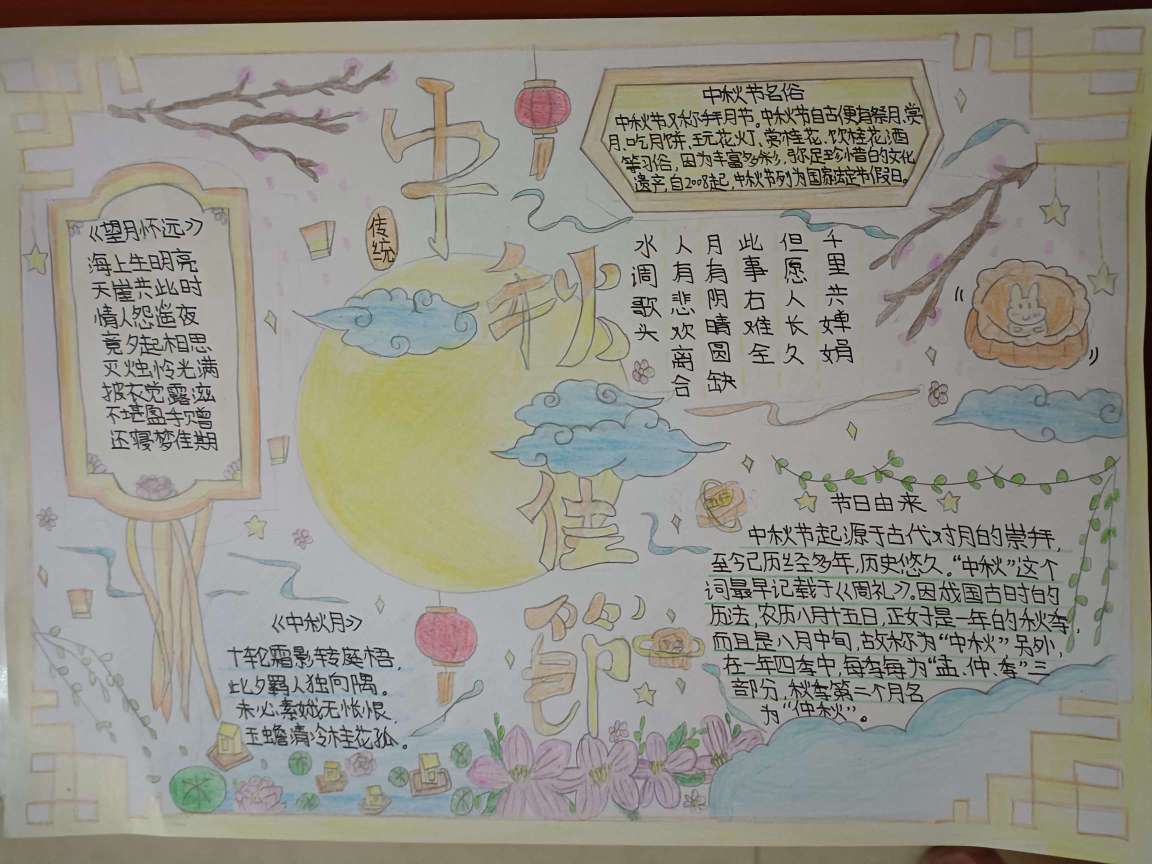 中秋佳節
传统
中秋节名俗
中秋节又称拜月节。中秋节自古便有祭月、赏
月、吃月饼、玩花灯、赏桂花、饮桂花酒
等习俗，因为丰富多彩，弥足珍惜的文化
遗产，自2008起，中秋节列为国家法定节假日。
《望月怀远》
海上生明亮
天崖共此时
情人怨遥夜
竟夕起相思
灭烛怜光满
披衣觉露滋
不堪盈手赠
还寝梦佳期
水调歌头
人有悲欢离合
月有阴晴圆缺
此事右难全
但愿人长久
千里共婵娟
节日由来
中秋节起源于古代对月的崇拜，
至今已历经多年，历史悠久。“中秋”这个
词最早记载于《周礼》。因我国古时的
历法，农历八月十五日，正好是一年的秋季，
而且是八月中旬，故称为“中秋”，另外，
在一年四季中，每季每为“孟、仲、季”三
部分，秋季第二个月名
为“仲秋”。
《中秋月》
十轮霜影转庭梧，
此夕羁人独向隅。
未必素娥无怅恨，
玉蟾清冷桂花孤。